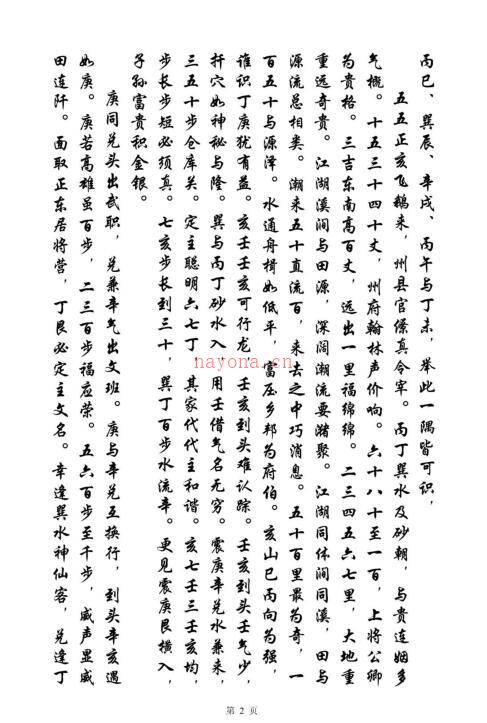 丙巳、巽辰、辛戌、丙午与丁未，举此一隅皆可识，
五五正亥飞鹅来，州县官僚真令宰。丙丁巽水及砂朝，与贵连姻多
气概。十五三十四十丈，州府翰林声价响。六十八十至一百，上将公卿
为贵格。三吉东南高百丈，远出一里福绵绵。二三四五六七里，大地重
重远奇贵。江湖溪涧与田源，深阔潮流要潴聚。江湖同体涧同溪，田与
源流总相类。潮来五十直流百，来去之中巧消息。五十百里最为奇，一
百五十与源泽。水通舟楫如低平，富压乡邦为府伯。亥山巳丙向为强，
谁识丁庚犹有益。亥壬壬亥可行龙，壬亥到头难认踪。壬亥到头壬气少，
扦穴如神秘与隆。巽与丙丁砂水入，用壬借气名无穷。震庚辛兑水兼来，
三五十步仓库关。定主聪明六七丁，其家代代主和谐。亥七壬三壬亥均，
步长步短必须真。七亥步长到三十，巽丁百步水流辛。更见震庚艮横入，
子孙富贵积金银。
庚同兑头出武职，兑兼辛气出文班。庚与辛兑互换行，到头辛亥遇
如庚。庚若高雄虽百步，二三百步福应荣。五六百步至千步，威声显威
田连阡。面取正东居将营，丁艮必定主文名。幸逢巽水神仙客，兑逢丁
nayona.cn
第 2 页